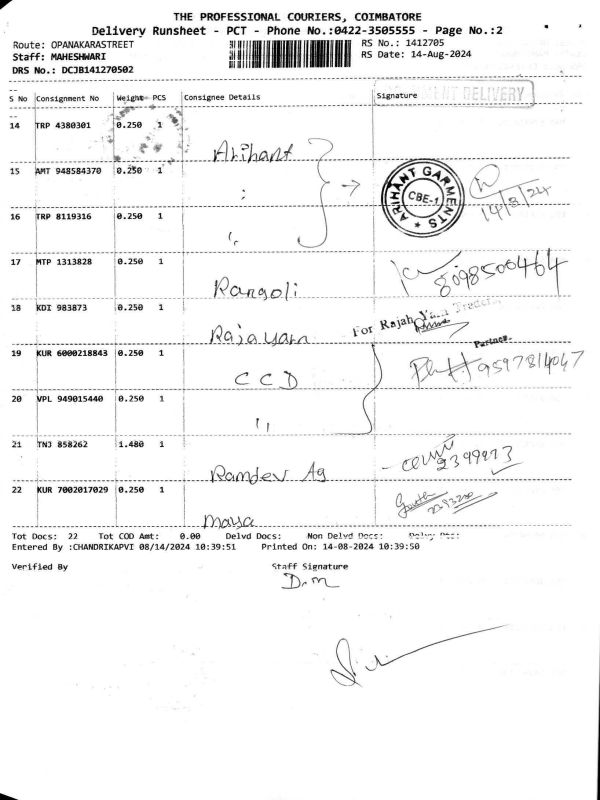 THE PROFESSIONAL COURIERS, COIMBATORE
Delivery Runsheet - PCT - Phone No.:0422-3505555 - Page No.:2
Route: OPANAKARASTREET
RS No.: 1412705
Staff: MAHESHWARI
RS Date: 14-Aug-2024
DRS No.: DCJB141270502
S No Consignment No Weight PCS Consignee Details Signature
DELIVERY
14 TRP 4380301 0.250 1 Arihant
15 AMT 948584370 0.250 1 :
ARIHANT GARMENTS
CBE-1
14/8/24
16 TRP 8119316 0.250 1 ''
17 MTP 1313828 0.250 1 Rangoli 8098500464
18 KDI 983873 0.250 1 Rajayarn For Rajah Yarn Traders
Partner
19 KUR 6000218843 0.250 1 CCD 9597814047
20 VPL 949015440 0.250 1 ''
21 TNJ 858262 1.480 1 Ramdev Ag 2399973
22 KUR 7002017029 0.250 1 maya
Tot Docs: 22 Tot COD Amt: 0.00 Delvd Docs: Non Delvd Docs: Delvy Pts:
Entered By :CHANDRIKAPVI 08/14/2024 10:39:51 Printed On: 14-08-2024 10:39:50
Verified By Staff Signature
D.m